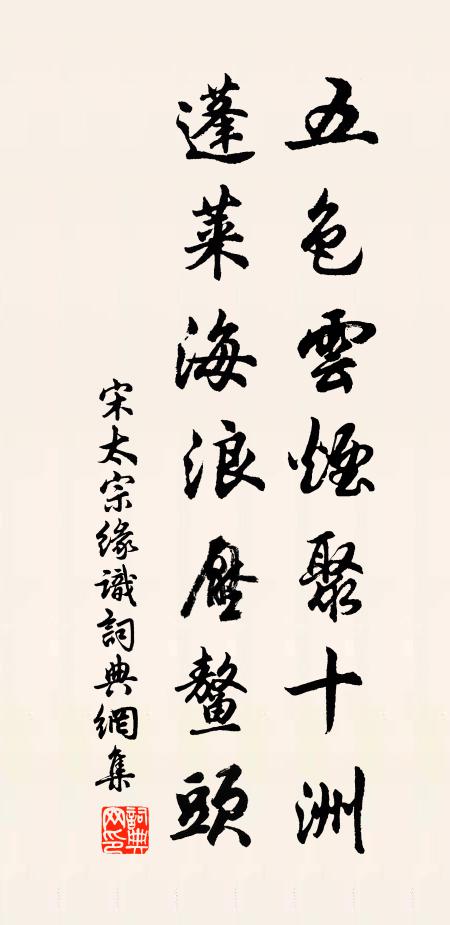 五色雲煙聚十洲
蓬萊海浪壓鼇頭
宋太宗緣識詞典網集
詞典网印